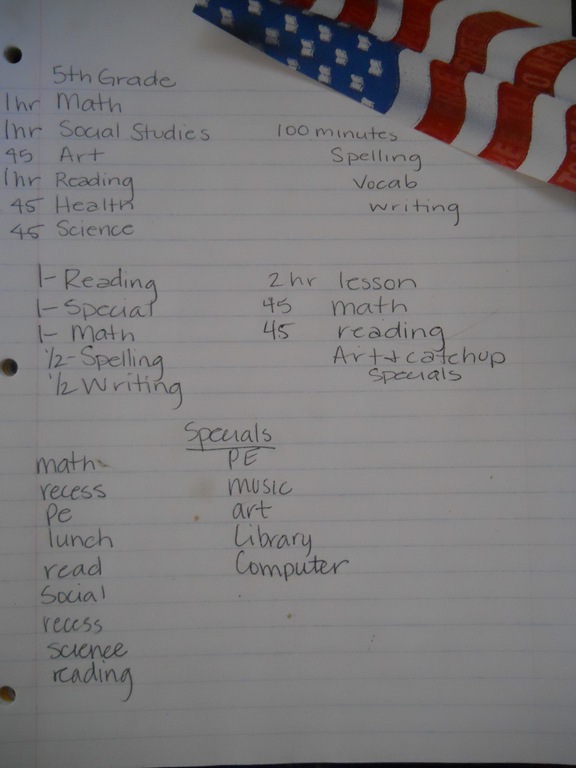 5th Grade
1hr Math
1hr Social Studies
45 Art
1hr Reading
45 Health
45 Science
100 minutes
Spelling
Vocab
writing
1- Reading
1- Special
1- Math
1/2- Spelling
1/2 Writing
2 hr lesson
45 math
45 reading
Art + catchup
Specials
math
recess
Pe
lunch
read
Social
recess
science
reading
Specials
PE
music
art
Library
Computer